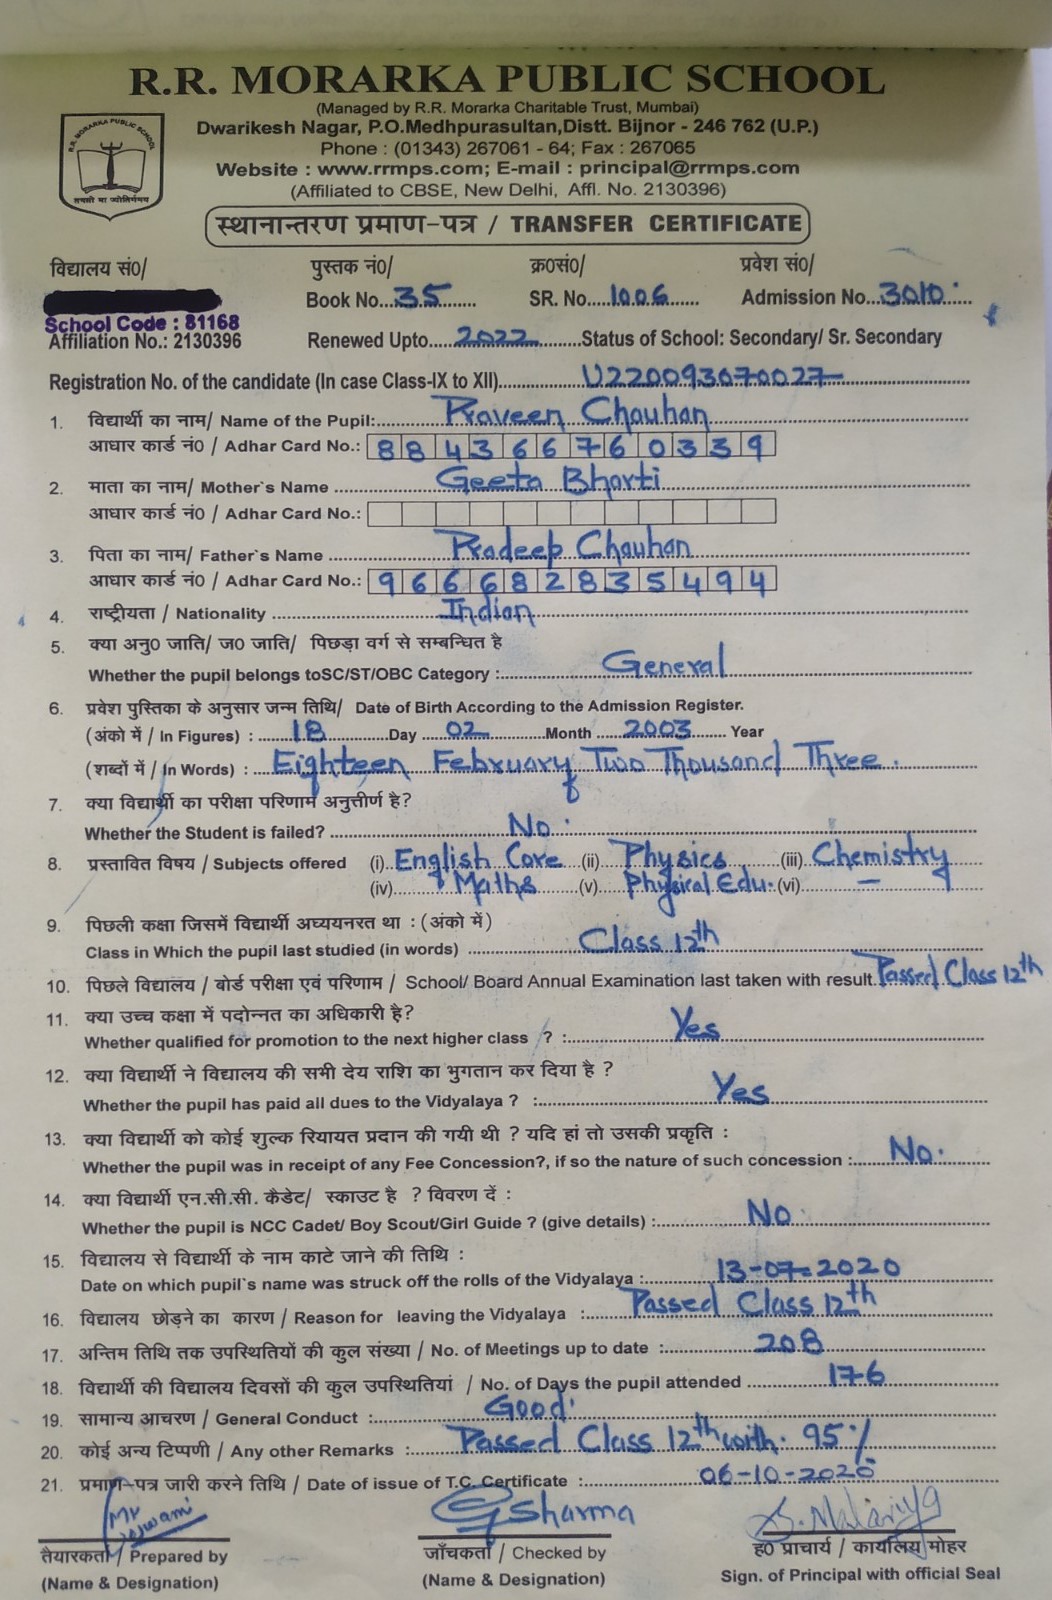 R.R. MORARKA PUBLIC SCHOOL
(Managed by R.R. Morarka Charitable Trust, Mumbai)
Dwarikesh Nagar, P.O.Medhpurasultan,Distt. Bijnor - 246 762 (U.P.)
Phone : (01343) 267061 - 64; Fax : 267065
Website : www.rrmps.com; E-mail : principal@rrmps.com
(Affiliated to CBSE, New Delhi, Affl. No. 2130396)
R.R. MORARKA PUBLIC SCHOOL
तमसो मा ज्योतिर्गमय
स्थानान्तरण प्रमाण-पत्र / TRANSFER CERTIFICATE
विद्यालय सं0/ पुस्तक नं0/ क्र0सं0/ प्रवेश सं0/
Book No...35....... SR. No....1006...... Admission No...3010.....
School Code : 81168
Affiliation No.: 2130396 Renewed Upto.....2022.........Status of School: Secondary/ Sr. Secondary
Registration No. of the candidate (In case Class-IX to XII)..........U220093070027..........
1. विद्यार्थी का नाम/ Name of the Pupil:..........Praveen Chauhan..........
आधार कार्ड नं0 / Adhar Card No.: 884366760339
2. माता का नाम/ Mother`s Name ..........Geeta Bharti..........
आधार कार्ड नं0 / Adhar Card No.:
3. पिता का नाम/ Father`s Name ..........Pradeep Chauhan..........
आधार कार्ड नं0 / Adhar Card No.: 966682835494
4. राष्ट्रीयता / Nationality ..........Indian..........
5. क्या अनु0 जाति/ ज0 जाति/ पिछड़ा वर्ग से सम्बन्धित है
Whether the pupil belongs toSC/ST/OBC Category :..........General..........
6. प्रवेश पुस्तिका के अनुसार जन्म तिथि/ Date of Birth According to the Admission Register.
(अंको में / In Figures) : ......18..........Day ....02..........Month ....2003....... Year
(शब्दों में / In Words) : ...Eighteen February Two Thousand Three.
7. क्या विद्यार्थी का परीक्षा परिणाम अनुत्तीर्ण है?
Whether the Student is failed? ..........No..........
8. प्रस्तावित विषय / Subjects offered (i)..English Core (ii) ..Physics.... (iii) Chemistry
(iv)......Maths (v) ...Physical Edu. (vi)......—......
9. पिछली कक्षा जिसमें विद्यार्थी अघ्ययनरत था : (अंको में)
Class in Which the pupil last studied (in words) ..........Class 12th..........
10. पिछले विद्यालय / बोर्ड परीक्षा एवं परिणाम / School/ Board Annual Examination last taken with result. Passed Class 12th
11. क्या उच्च कक्षा में पदोन्नत का अधिकारी है?
Whether qualified for promotion to the next higher class ? :..........Yes..........
12. क्या विद्यार्थी ने विद्यालय की सभी देय राशि का भुगतान कर दिया है ?
Whether the pupil has paid all dues to the Vidyalaya ? :..........Yes..........
13. क्या विद्यार्थी को कोई शुल्क रियायत प्रदान की गयी थी ? यदि हां तो उसकी प्रकृति :
Whether the pupil was in receipt of any Fee Concession?, if so the nature of such concession :......No.......
14. क्या विद्यार्थी एन.सी.सी. कैडेट/ स्काउट है ? विवरण दें :
Whether the pupil is NCC Cadet/ Boy Scout/Girl Guide ? (give details) :..........No..........
15. विद्यालय से विद्यार्थी के नाम काटे जाने की तिथि :
Date on which pupil`s name was struck off the rolls of the Vidyalaya :..........13-07-2020..........
16. विद्यालय छोड़ने का कारण / Reason for leaving the Vidyalaya :......Passed Class 12th..........
17. अन्तिम तिथि तक उपस्थितियों की कुल संख्या / No. of Meetings up to date :..........208..........
18. विद्यार्थी की विद्यालय दिवसों की कुल उपस्थितियां / No. of Days the pupil attended ..........176..........
19. सामान्य आचरण / General Conduct :..........Good..........
20. कोई अन्य टिप्पणी / Any other Remarks :......Passed Class 12th with. 95%..........
21. प्रमाण-पत्र जारी करने तिथि / Date of issue of T.C. Certificate :..........06-10-2020..........
Mr G Sharma S. Malariya
तैयारकर्ता / Prepared by जाँचकर्ता / Checked by ह0 प्राचार्य / कार्यालय मोहर
(Name & Designation) (Name & Designation) Sign. of Principal with official Seal